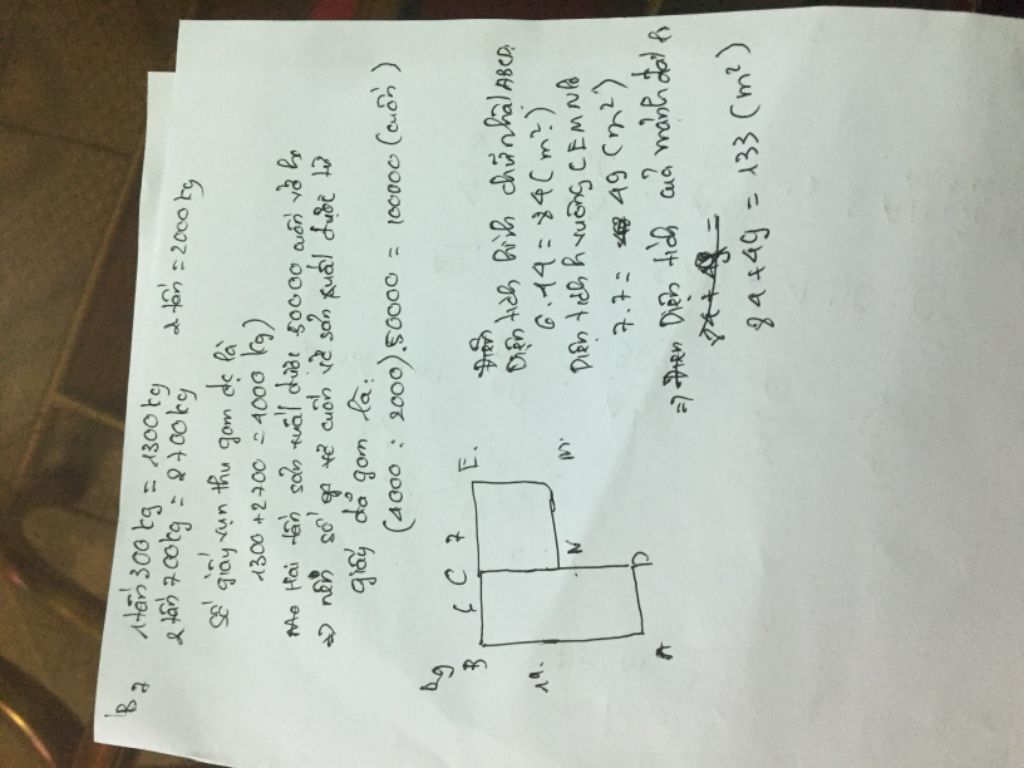 B7
1 tấn 300 kg = 1300 kg
2 tấn 700 kg = 2700 kg
2 tấn = 2000 kg
Số giấy vụn thu gom đc là
1300 + 2700 = 4000 kg)
Hai tấn sản xuất được 50000 cuốn vở
=> nên số cuốn vở sản xuất được từ
giấy đã gom là:
(4000 : 2000).50000 = 100000 (cuốn)
B9
B
C
7
E.
14.
N
M
A
D
Diện tích hình chữ nhật ABCD.
6.14 = 84 (m²)
Diện tích h vuông CEMN là
7.7 = 49 (m²)
=> Diện tích của mảnh đất
84 + 49 =
84 + 49 = 133 (m²)